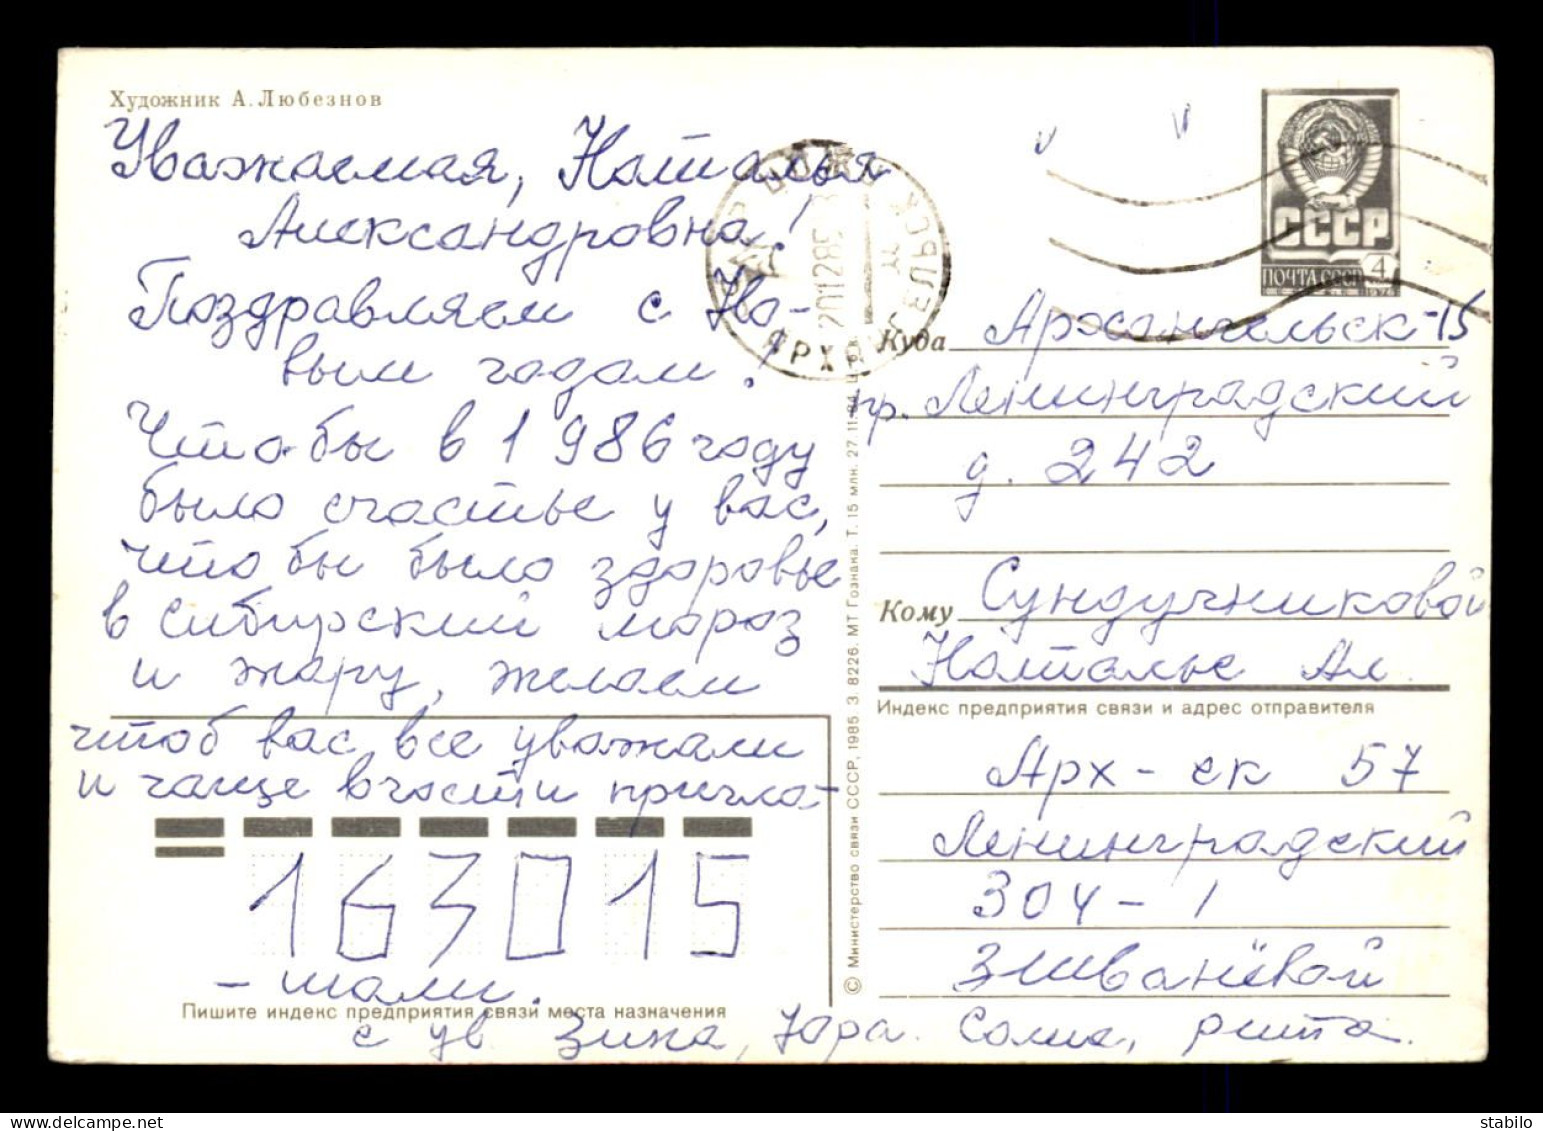 Художник А. Любезнов
Уважаемая, Наталья
Александровна!
Поздравляем с Но-
вым годом!
Что бы в 1986 году
было счастье у вас,
что бы было здоровье
в сибирский мороз
и жару, желаем
чтоб вас все уважали
и чаще в гости пригла-
163015
- шали.
Пишите индекс предприятия связи места назначения
с ув Зина, Юра. Солма, рита.
© Министерство связи СССР, 1985. З. 8226. МТ Гознака. Т. 15 млн. 27.11.84.
201285
СССР
ПОЧТА СССР 4
Куда Архангельск-15
пр. Ленинградский
д. 242
Кому Сундучниковой
Наталье Ал.
Индекс предприятия связи и адрес отправителя
Арх-ск 57
Ленинградский
304-1